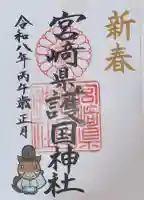 新春
宮崎県護国神社
令和八年丙午歳正月